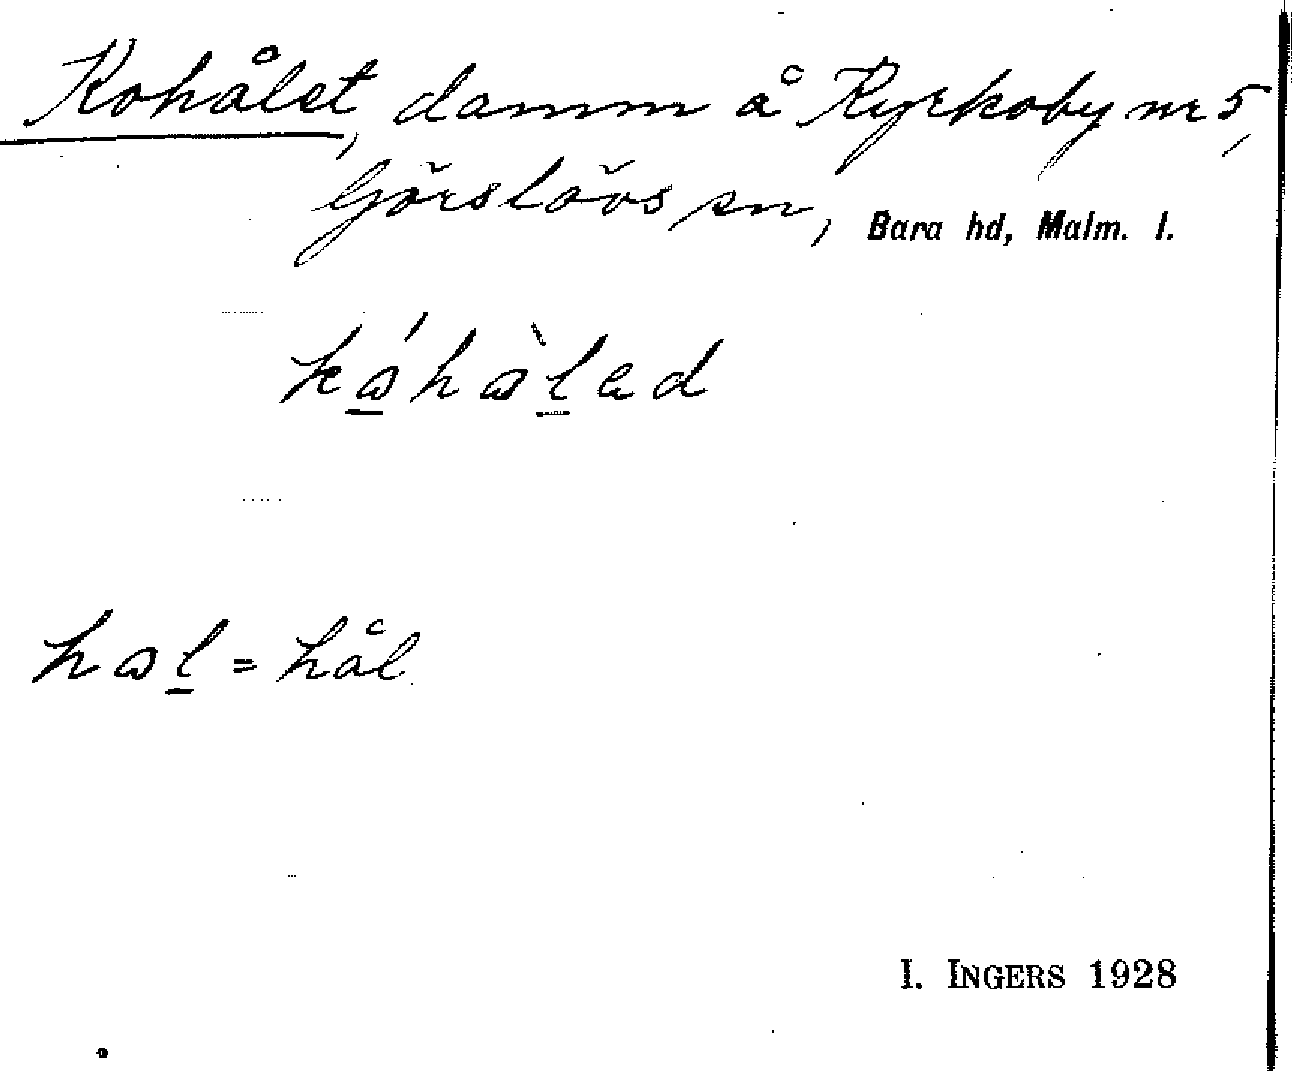 Kohålet, damm å Kyrkoby nr 5,
Görslövs sn, Bara hd, Malm. l.
kɷ́hɷ̀lad
hɷl = hål
I. INGERS 1928